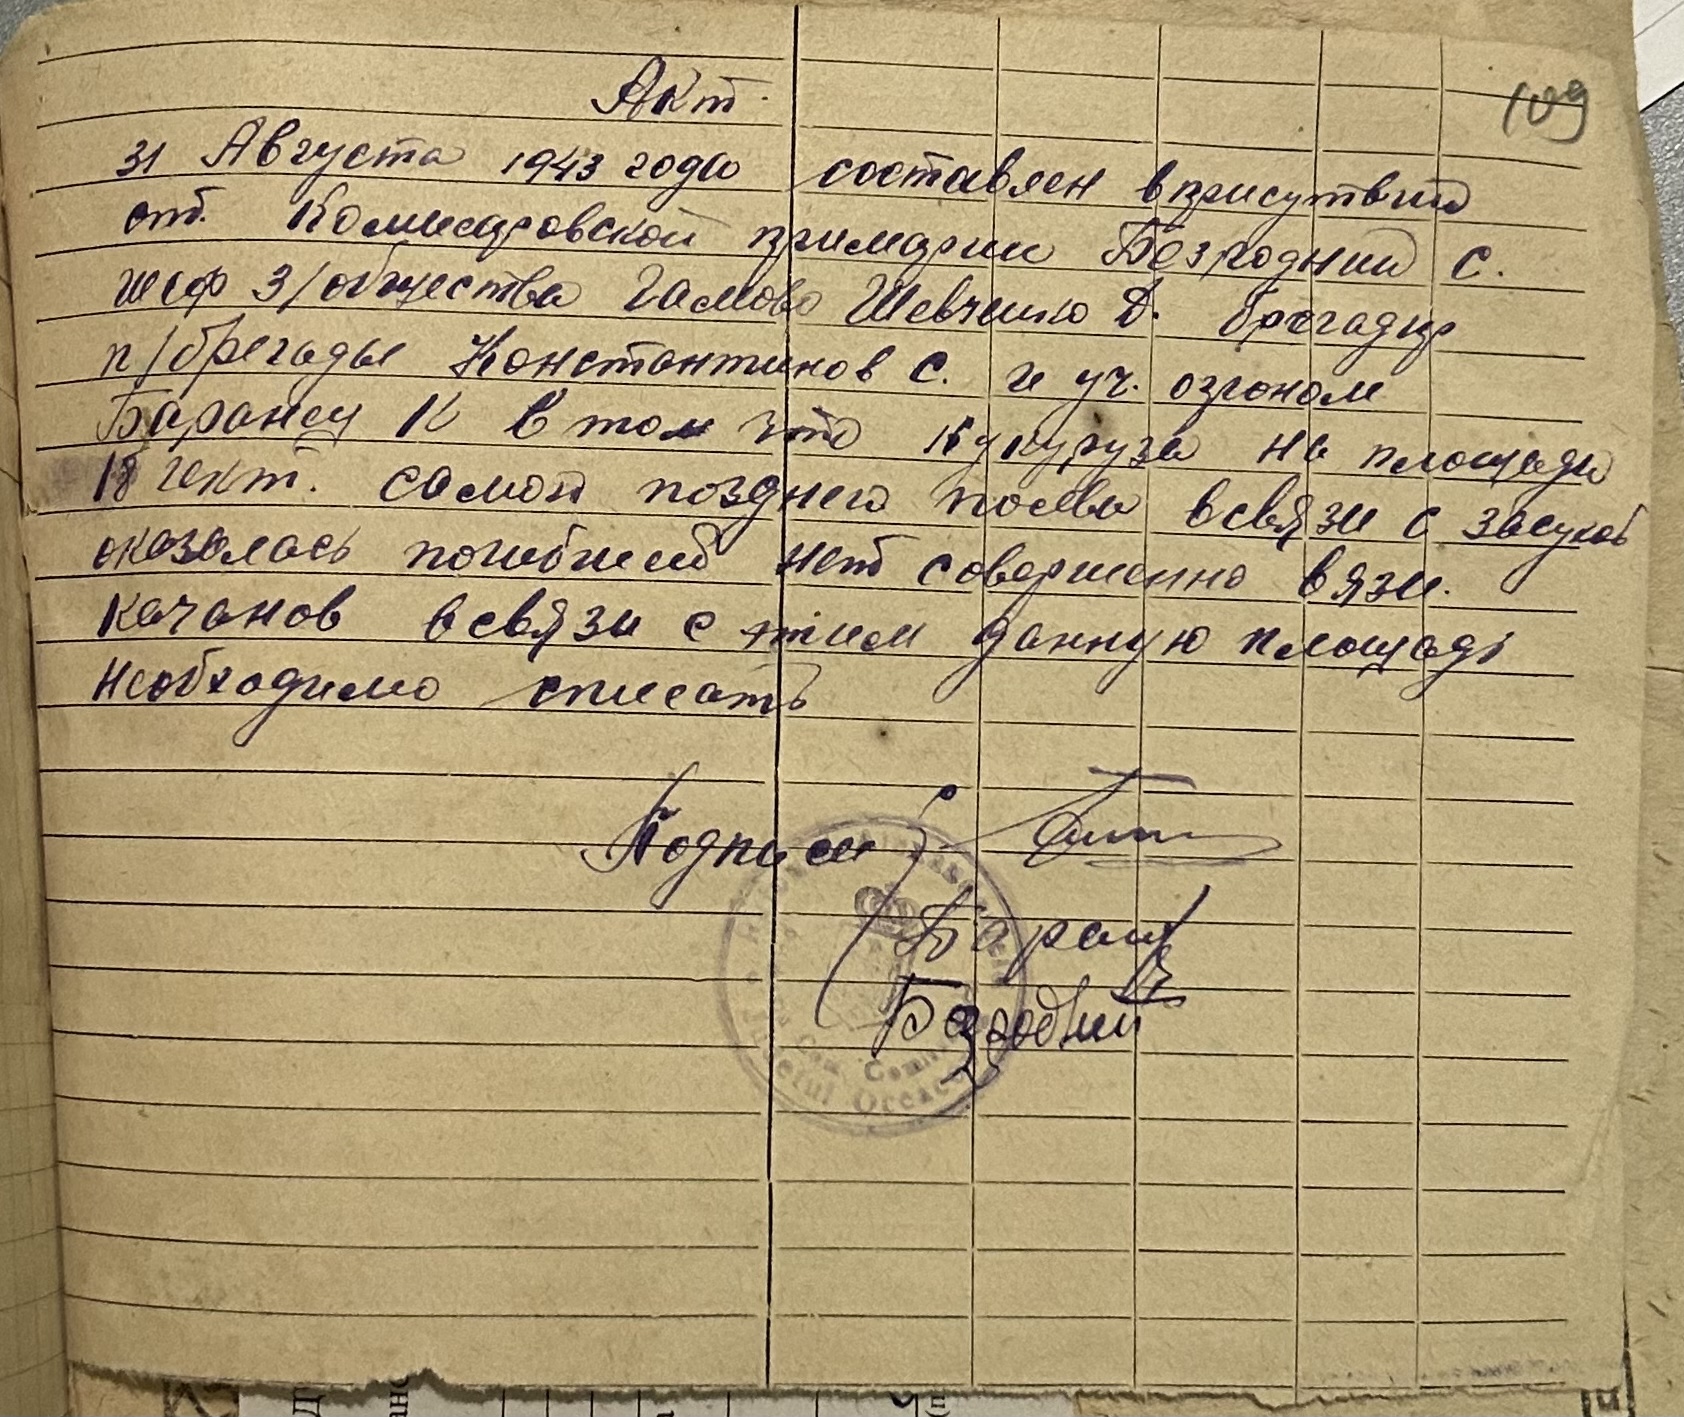 109
Акт.
31 Августа 1943 года составлен в присутствии
от. Комисаровской примарии Безродний С.
шеф з/общества Гамова Шевченко Д. бригадир
п/бригады Константинов С. и уч. агроном
Баранец К в том что кукуруза на площади
18 гект. самой позднего посева в связи с засухой
оказалась погибшей нет совершенно вязи.
качанов в связи с этим данную площадь
необходимо списать
Подписи
Баранец
Безродний